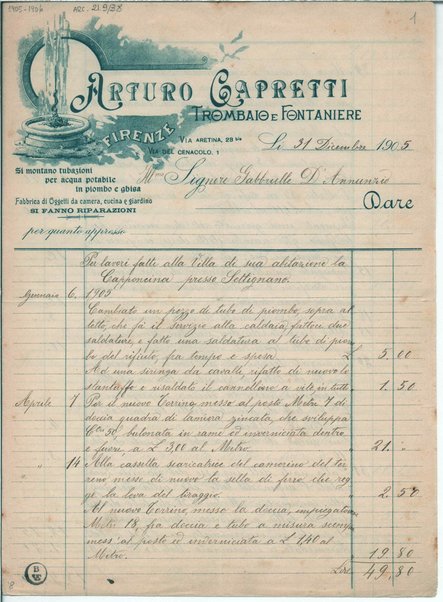 1905-1906
ARC. 21.9/38
1
ARTURO CAPRETTI
TROMBAIO E FONTANIERE
FIRENZE
VIA ARETINA, 28 bis
VIA DEL CENACOLO, 1
Li 31 Dicembre 1905
Si montano tubazioni
per acqua potabile
in piombo e ghisa
Fabbrica di Oggetti da camera, cucina e giardino
SI FANNO RIPARAZIONI
Signore Gabbrielle D'Annunzio
Dare
per quanto appresso
Per lavori fatti alla Villa di sua abitazione la
Capponcina presso Settignano.
Gennaio 6. 1905
Cambiato un pezzo di tubo di piombo, sopra al
tetto, che fà il servizio alla caldaia, fattoci due
saldature, e fatto una saldatura al tubo di piom
bo del rifiuto, fra tempo e spesa £ 5.00
Ad una siringa da cavalli, rifatto di nuovo lo
stantuffo e risaldato il cannellino a vite in tutto " 1.50
Aprile 7 Per il nuovo Torrino messo al posto Metri 7 di
doccia quadra di lamiera zincata, che sviluppa
C.tri 50, bulonata in rame ed inverniciata dentro
e fuori, a £ 3,00 al Metro. " 21. "
" 14 Alla cassetta scaricatrice del camorino del ter
reno messo di nuovo la sella di ferro che reg
ge la leva del tiraggio. " 2.50
Al nuovo Torrino, messo la doccia, impiegatovi
Metri 18, fra doccia e tubo a misura
messi al posto ed inverniciata a £ 1,10 al
Metro. " 19.80
Lire 49.80